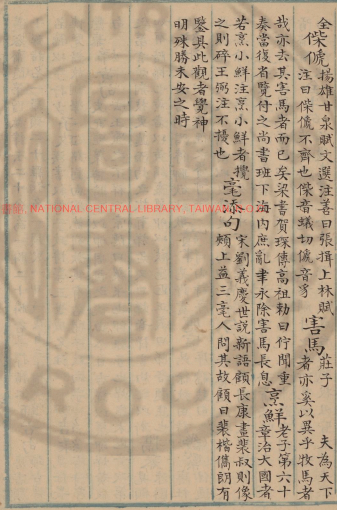 仝
偨傂
揚雄甘泉賦文選注善曰張揖上林賦
注曰偨傂不齊也偨音蟻切傂音豸
害馬
莊子 夫為天下
者亦奚以異乎牧馬者
哉亦去其害馬者而已矣梁書賀琛傳高祖勅曰佇聞重
奏當復省覽付之尚書班下海内庶亂聿永除害馬長息
烹鮮
老子第六十
章治大國者
若烹小鮮注烹小鮮者攪
之則碎王弼注不擾也
毫添句
宋劉義慶世說新語顧長康畫裴叔則像
頰上益三毫人問其故顧曰裴楷儁朗有
鑒具此觀者覺神
明殊勝未安之時
NATIONAL CENTRAL LIBRARY, TAIWAN